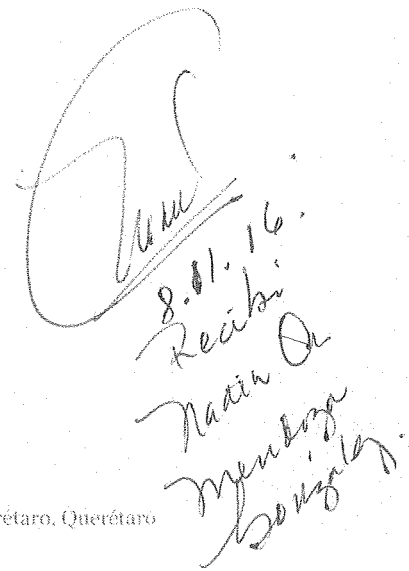 8.01.16.
Recibi
Nadia
Mendoza
González.
rétaro, Querétaro